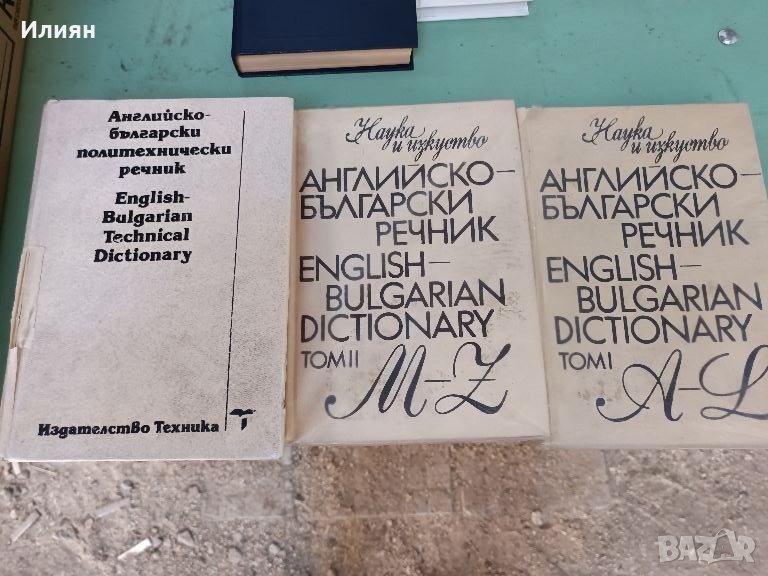 Илиян
Английско-
български
политехнически
речник
English-
Bulgarian
Technical
Dictionary
Издателство Техника
Наука
и изкуство
АНГЛИЙСКО-
БЪЛГАРСКИ
РЕЧНИК
ENGLISH-
BULGARIAN
DICTIONARY
ТОМ II
M-Z
Наука
и изкуство
АНГЛИЙСКО-
БЪЛГАРСКИ
РЕЧНИК
ENGLISH-
BULGARIAN
DICTIONARY
ТОМ I
A-L
BAZAR